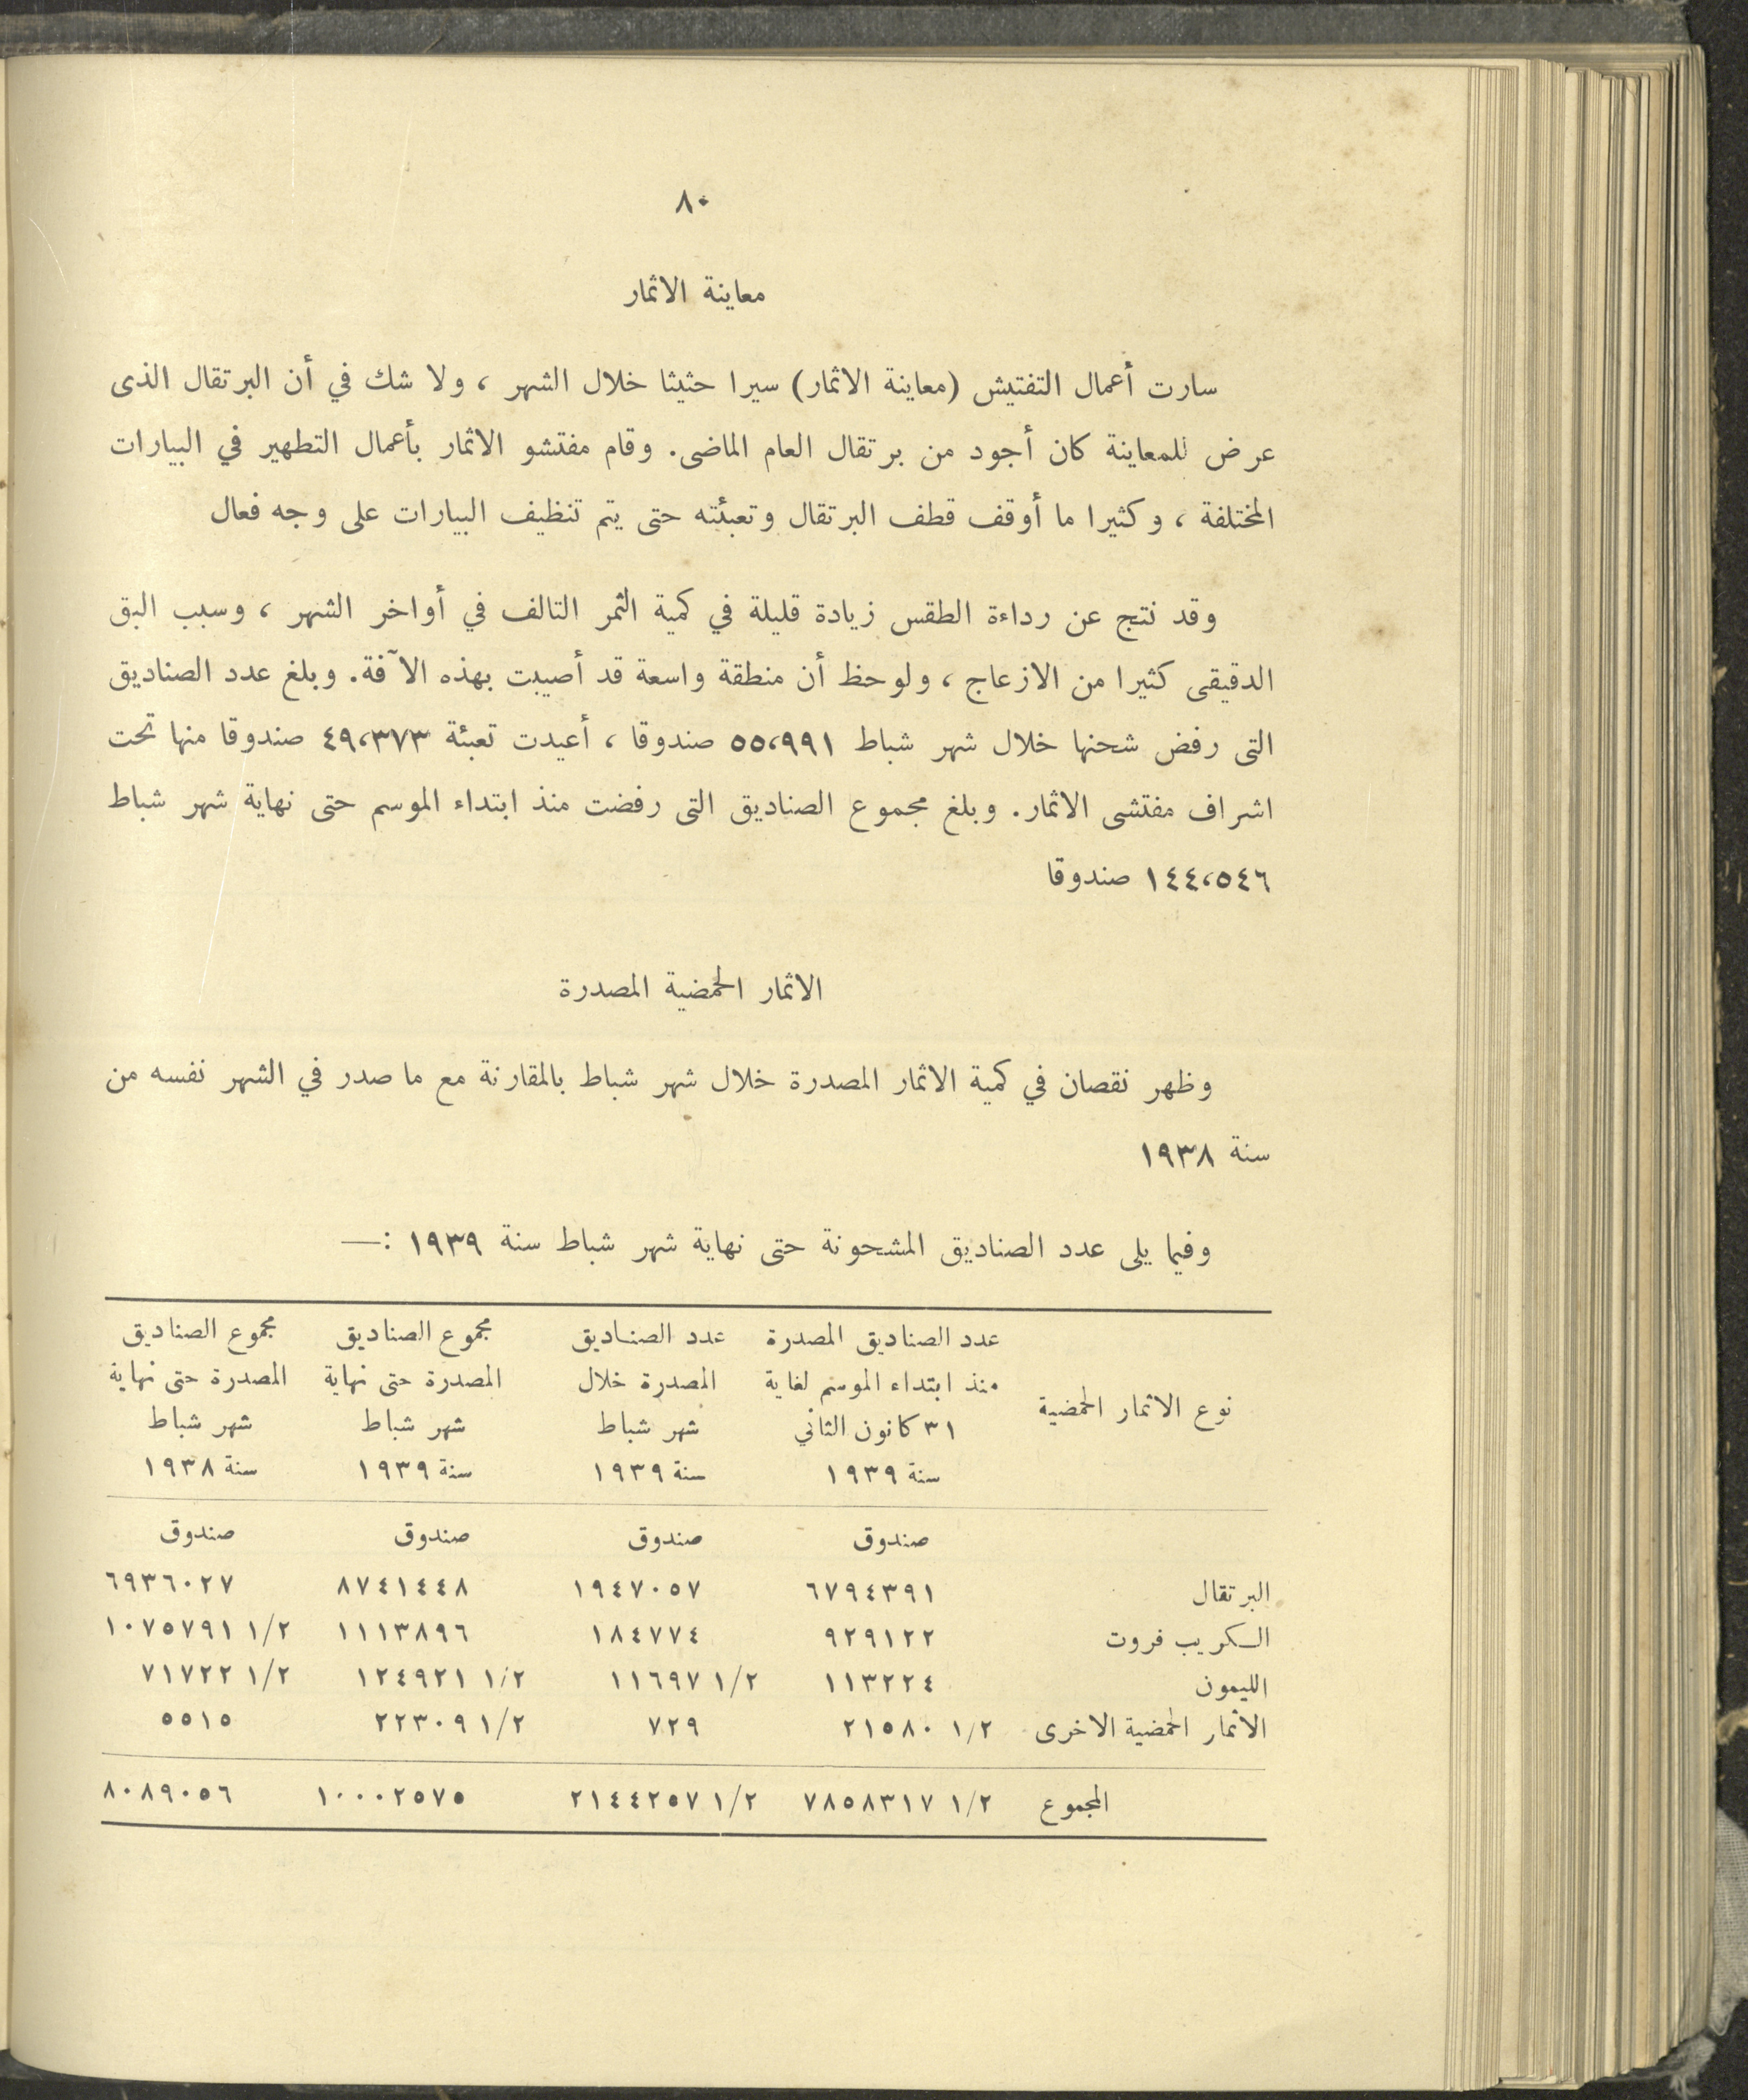 ٨٠
معاينة الاثمار
سارت أعمال التفتيش (معاينة الاثمار) سيرا حثيثا خلال الشهر ، ولا شك في أن البرتقال الذى
عرض للمعاينة كان أجود من برتقال العام الماضى. وقام مفتشو الاثمار بأعمال التطهير في البيارات
المختلفة ، وكثيرا ما أوقف قطف البرتقال وتعبئته حتى يتم تنظيف البيارات على وجه فعال
وقد نتج عن رداءة الطقس زيادة قليلة في كمية الثمر التالف في أواخر الشهر ، وسبب البق
الدقيقى كثيرا من الازعاج ، ولوحظ أن منطقة واسعة قد أصيبت بهذه الآفة. وبلغ عدد الصناديق
التى رفض شحنها خلال شهر شباط ٥٥،٩٩١ صندوقا ، أعيدت تعبئة ٤٩،٣٧٣ صندوقا منها تحت
اشراف مفتشى الاثمار. وبلغ مجموع الصناديق التى رفضت منذ ابتداء الموسم حتى نهاية شهر شباط
١٤٤،٥٤٦ صندوقا
الاثمار الحمضية المصدرة
وظهر نقصان في كمية الاثمار المصدرة خلال شهر شباط بالمقارنة مع ما صدر في الشهر نفسه من
سنة ١٩٣٨
وفيما يلى عدد الصناديق المشحونة حتى نهاية شهر شباط سنة ١٩٣٩ :—
عدد الصناديق المصدرة عدد الصناديق مجموع الصناديق مجموع الصناديق
منذ ابتداء الموسم لغاية المصدرة خلال المصدرة حتى نهاية المصدرة حتى نهاية
نوع الاثمار الحمضية ٣١ كانون الثاني شهر شباط شهر شباط شهر شباط
سنة ١٩٣٩ سنة ١٩٣٩ سنة ١٩٣٩ سنة ١٩٣٨
صندوق صندوق صندوق صندوق
البرتقال ٦٧٩٤٣٩١ ١٩٤٧٠٥٧ ٨٧٤١٤٤٨ ٦٩٣٦٠٢٧
الكريب فروت ٩٢٩١٢٢ ١٨٤٧٧٤ ١١١٣٨٩٦ ١٠٧٥٧٩١ ١/٢
الليمون ١١٣٢٢٤ ١١٦٩٧ ١/٢ ١٢٤٩٢١ ١/٢ ٧١٧٢٢ ١/٢
الاثمار الحمضية الاخرى ٢١٥٨٠ ١/٢ ٧٢٩ ٢٢٣٠٩ ١/٢ ٥٥١٥
المجموع ٧٨٥٨٣١٧ ١/٢ ٢١٤٤٢٥٧ ١/٢ ١٠٠٠٢٥٧٥ ٨٠٨٩٠٥٦